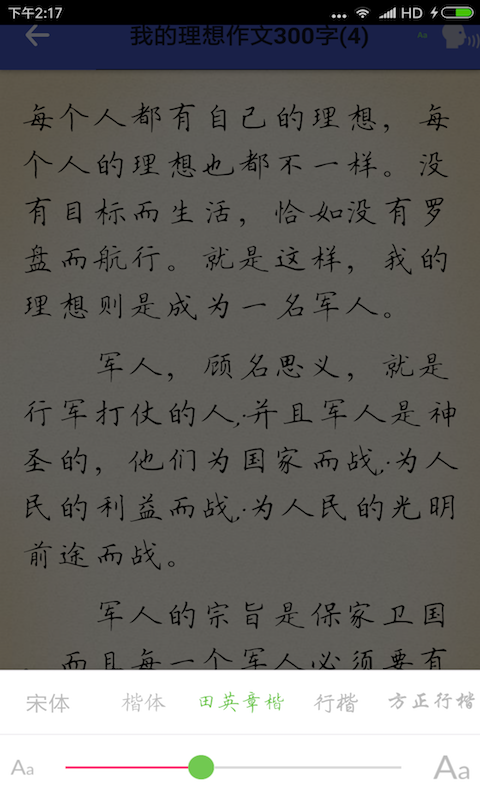 下午2:17 ... HD
我的理想作文300字(4) Aa
每个人都有自己的理想，每
个人的理想也都不一样。没
有目标而生活，恰如没有罗
盘而航行。就是这样，我的
理想则是成为一名军人。
军人，顾名思义，就是
行军打仗的人,.并且军人是神
圣的，他们为国家而战,.为人
民的利益而战,.为人民的光明
前途而战。
军人的宗旨是保家卫国
，而且每一个军人必须要有
宋体 楷体 田英章楷 行楷 方正行楷
Aa Aa